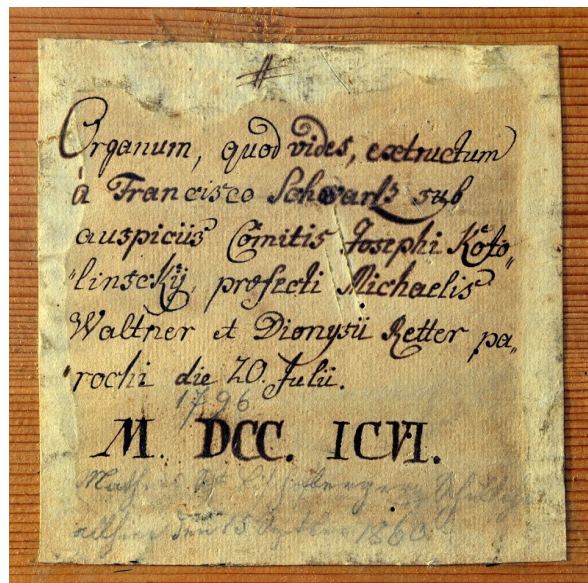 Organum, quod vides, extructum
à Francisco Schwarz sub
auspiciis Comitis Josephi Koto„
„linsckÿ, profecti Michaelis
Waltner et Dionysii Retter pa„
rochi die 20. Julii.
1796
M. DCC. ICVI.
1860